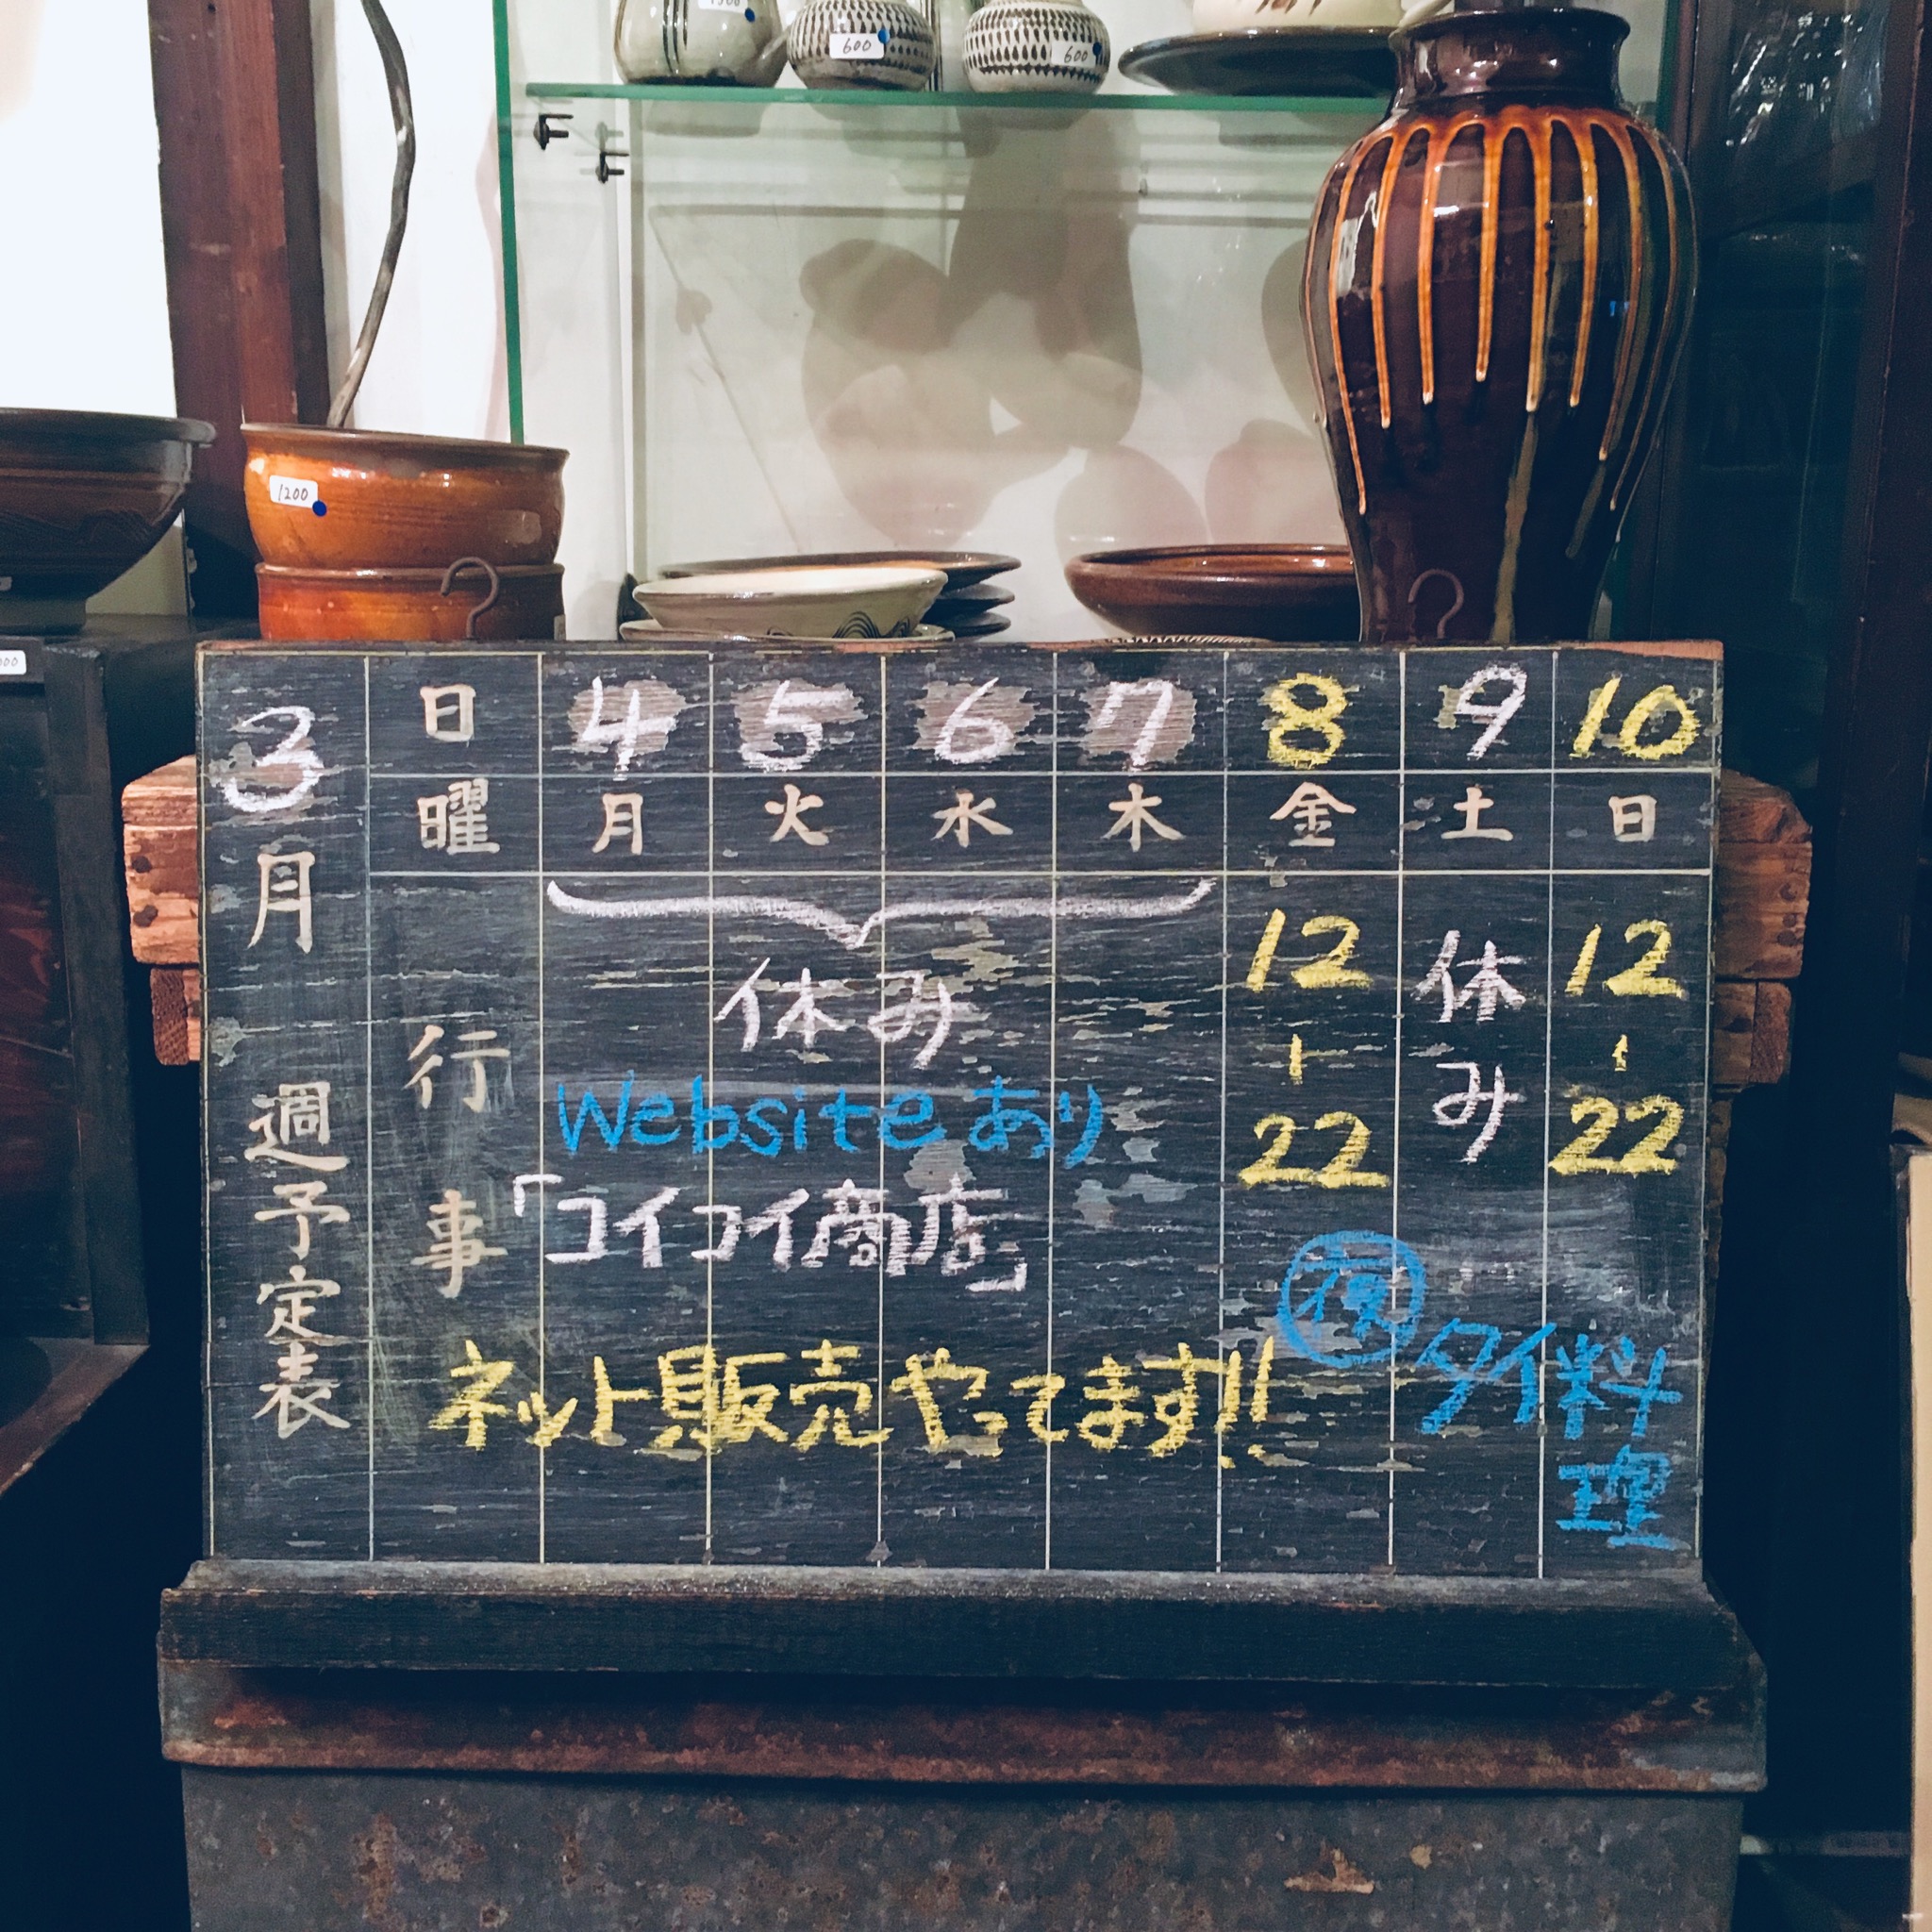 1300
600
600
1200
000
3月
週予定表
日 4 5 6 7 8 9 10
曜 月 火 水 木 金 土 日
行事
休み
Websiteあり
「コイコイ商店」
ネット販売やってます!!
12
|
22
休み
12
|
22
夜
タイ料理